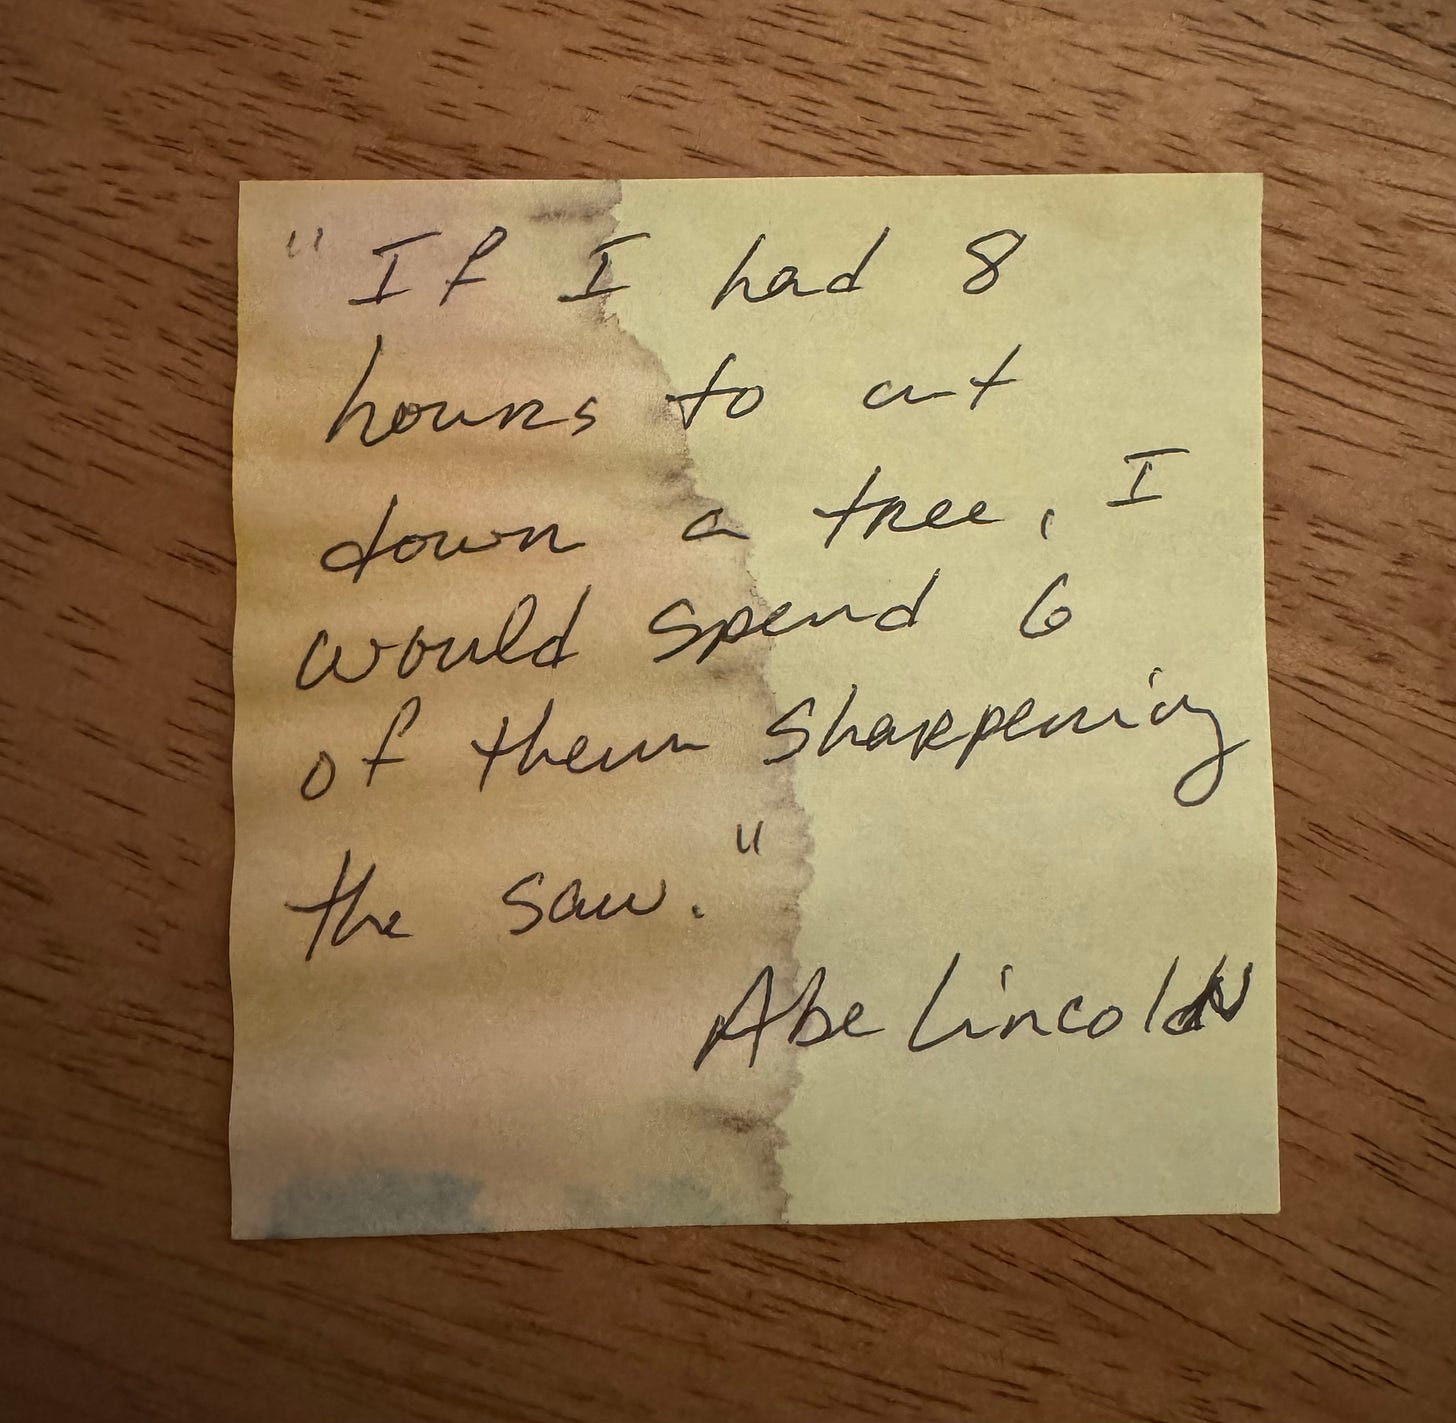 "If I had 8
hours to cut
down a tree, I
would spend 6
of them sharpening
the saw."
Abe Lincoln